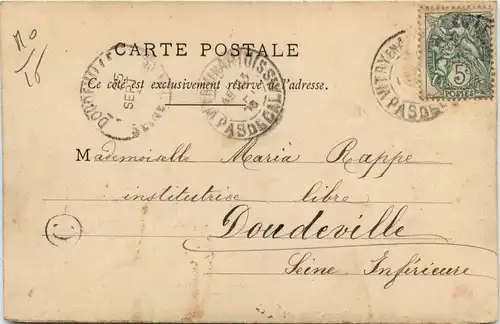 No
16
CARTE POSTALE
Ce côté est exclusivement réservé à l'adresse.
5c
POSTES
PAS DE CALAIS
PAS DE CAL
SEPT
Mademoiselle Maria Rappe
institutrise libre
Doudeville
Seine Inférieure
C